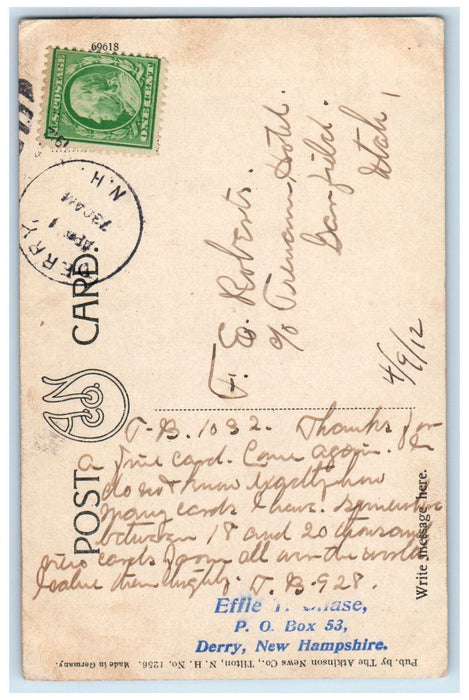 69618
U.S. POSTAGE
ONE CENT
N.H.
730 AM
APR 1
POST CARD
F. E. Roberts.
c/o Hotel.
Garfield.
Utah.
4/9/12
1032. Thanks for
a fine card. Come again. I
do not know exactly how
many cards I have. Somewhere
between 18 and 20 thousand
view cards from all over the world
highly. 928.
Write message here.
Effie Chase,
P. O. Box 53,
Derry, New Hampshire.
Pub. by The Atkinson News Co., Tilton, N. H. No. 1256. Made in Germany.